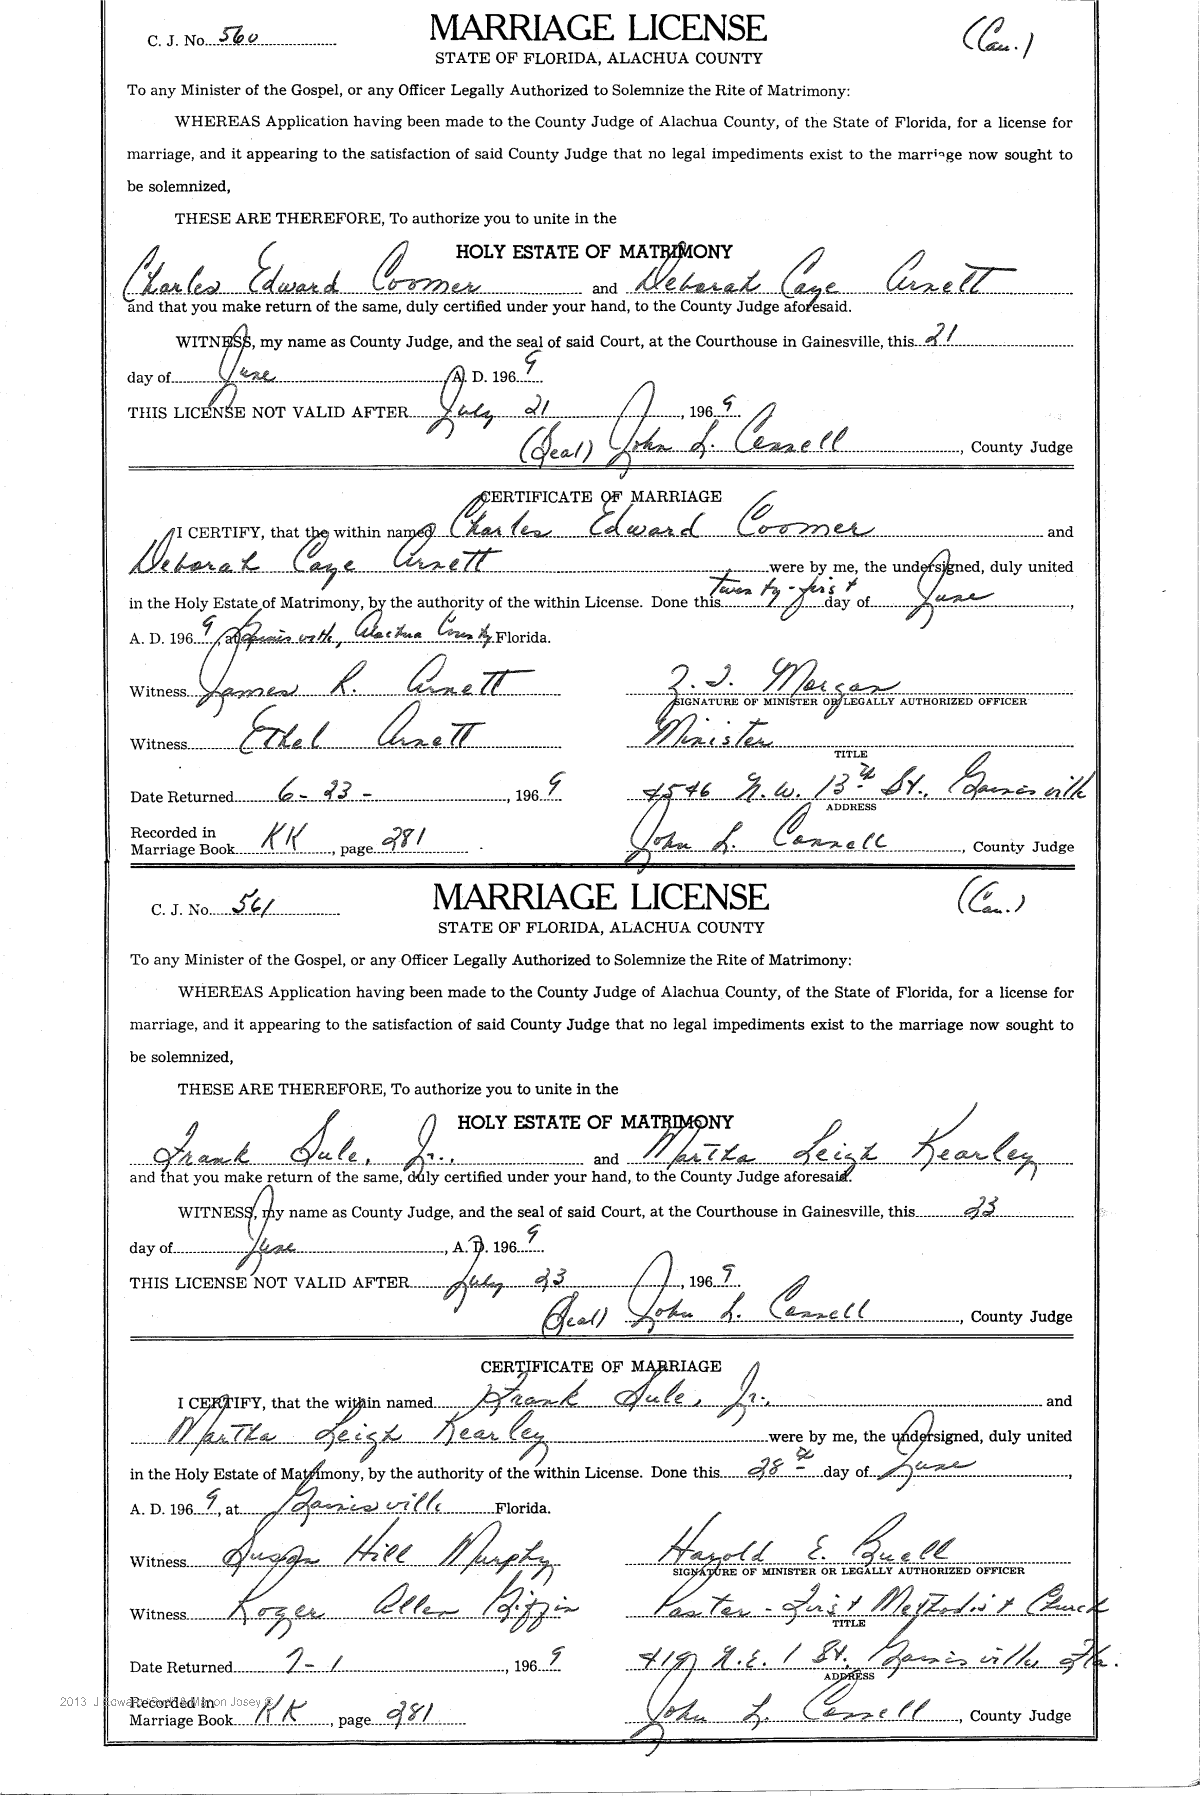 C. J. No. 560
MARRIAGE LICENSE
(Cau.)
STATE OF FLORIDA, ALACHUA COUNTY
To any Minister of the Gospel, or any Officer Legally Authorized to Solemnize the Rite of Matrimony:
WHEREAS Application having been made to the County Judge of Alachua County, of the State of Florida, for a license for
marriage, and it appearing to the satisfaction of said County Judge that no legal impediments exist to the marriage now sought to
be solemnized,
THESE ARE THEREFORE, To authorize you to unite in the
HOLY ESTATE OF MATRIMONY
Charles Edward Coomer and Deborah Caye Arnett
and that you make return of the same, duly certified under your hand, to the County Judge aforesaid.
WITNESS, my name as County Judge, and the seal of said Court, at the Courthouse in Gainesville, this 21
day of June A. D. 1969
THIS LICENSE NOT VALID AFTER July 21, 1969
(Seal) John L. Connell, County Judge
CERTIFICATE OF MARRIAGE
I CERTIFY, that the within named Charles Edward Coomer and
Deborah Caye Arnett were by me, the undersigned, duly united
in the Holy Estate of Matrimony, by the authority of the within License. Done this twenty-first day of June,
A. D. 1969, at Gainesville, Alachua County Florida.
Witness James R. Arnett Z. T. Morgan
SIGNATURE OF MINISTER OR LEGALLY AUTHORIZED OFFICER
Witness Ethel Arnett Minister
TITLE
Date Returned 6-23-, 1969 4546 N.W. 13th St., Gainesville
ADDRESS
Recorded in
Marriage Book KK, page 281 John L. Connell, County Judge
C. J. No. 561
MARRIAGE LICENSE
(Cau.)
STATE OF FLORIDA, ALACHUA COUNTY
To any Minister of the Gospel, or any Officer Legally Authorized to Solemnize the Rite of Matrimony:
WHEREAS Application having been made to the County Judge of Alachua County, of the State of Florida, for a license for
marriage, and it appearing to the satisfaction of said County Judge that no legal impediments exist to the marriage now sought to
be solemnized,
THESE ARE THEREFORE, To authorize you to unite in the
HOLY ESTATE OF MATRIMONY
Frank Sule, Jr., and Martha Leigh Kearley
and that you make return of the same, duly certified under your hand, to the County Judge aforesaid.
WITNESS, my name as County Judge, and the seal of said Court, at the Courthouse in Gainesville, this 23
day of June, A. D. 1969
THIS LICENSE NOT VALID AFTER July 23, 1969
(Seal) John L. Connell, County Judge
CERTIFICATE OF MARRIAGE
I CERTIFY, that the within named Frank Sule, Jr., and
Martha Leigh Kearley were by me, the undersigned, duly united
in the Holy Estate of Matrimony, by the authority of the within License. Done this 28th day of June,
A. D. 1969, at Gainesville Florida.
Witness Susan Hill Murphy Harold E. Buell
SIGNATURE OF MINISTER OR LEGALLY AUTHORIZED OFFICER
Witness Roger Allen Pastor - First Methodist Church
TITLE
Date Returned 7-1, 1969 419 N.E. 1 St., Gainesville, Fla.
ADDRESS
Recorded in
Marriage Book KK, page 281 John L. Connell, County Judge
2013 Josey ©